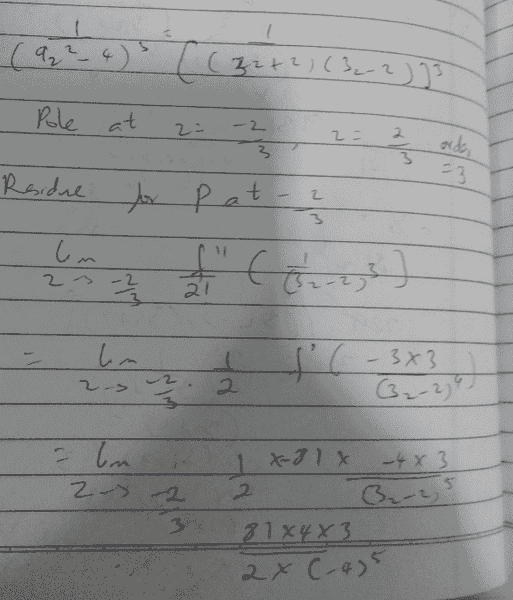 1/(9z²-4)³ = 1/[(3z+2)(3z-2)]³
Pole at z = -2/3, z = 2/3 order = 3
Residue for P at -2/3
lim z→-2/3 f''/2! (1/(3z-2)³)
= lim z→-2/3 · 1/2 f' (-3×3/(3z-2)⁴)
= lim z→-2/3 1/2 ×-81× -4×3/(3z-2)⁵
81×4×3/2×(-4)⁵